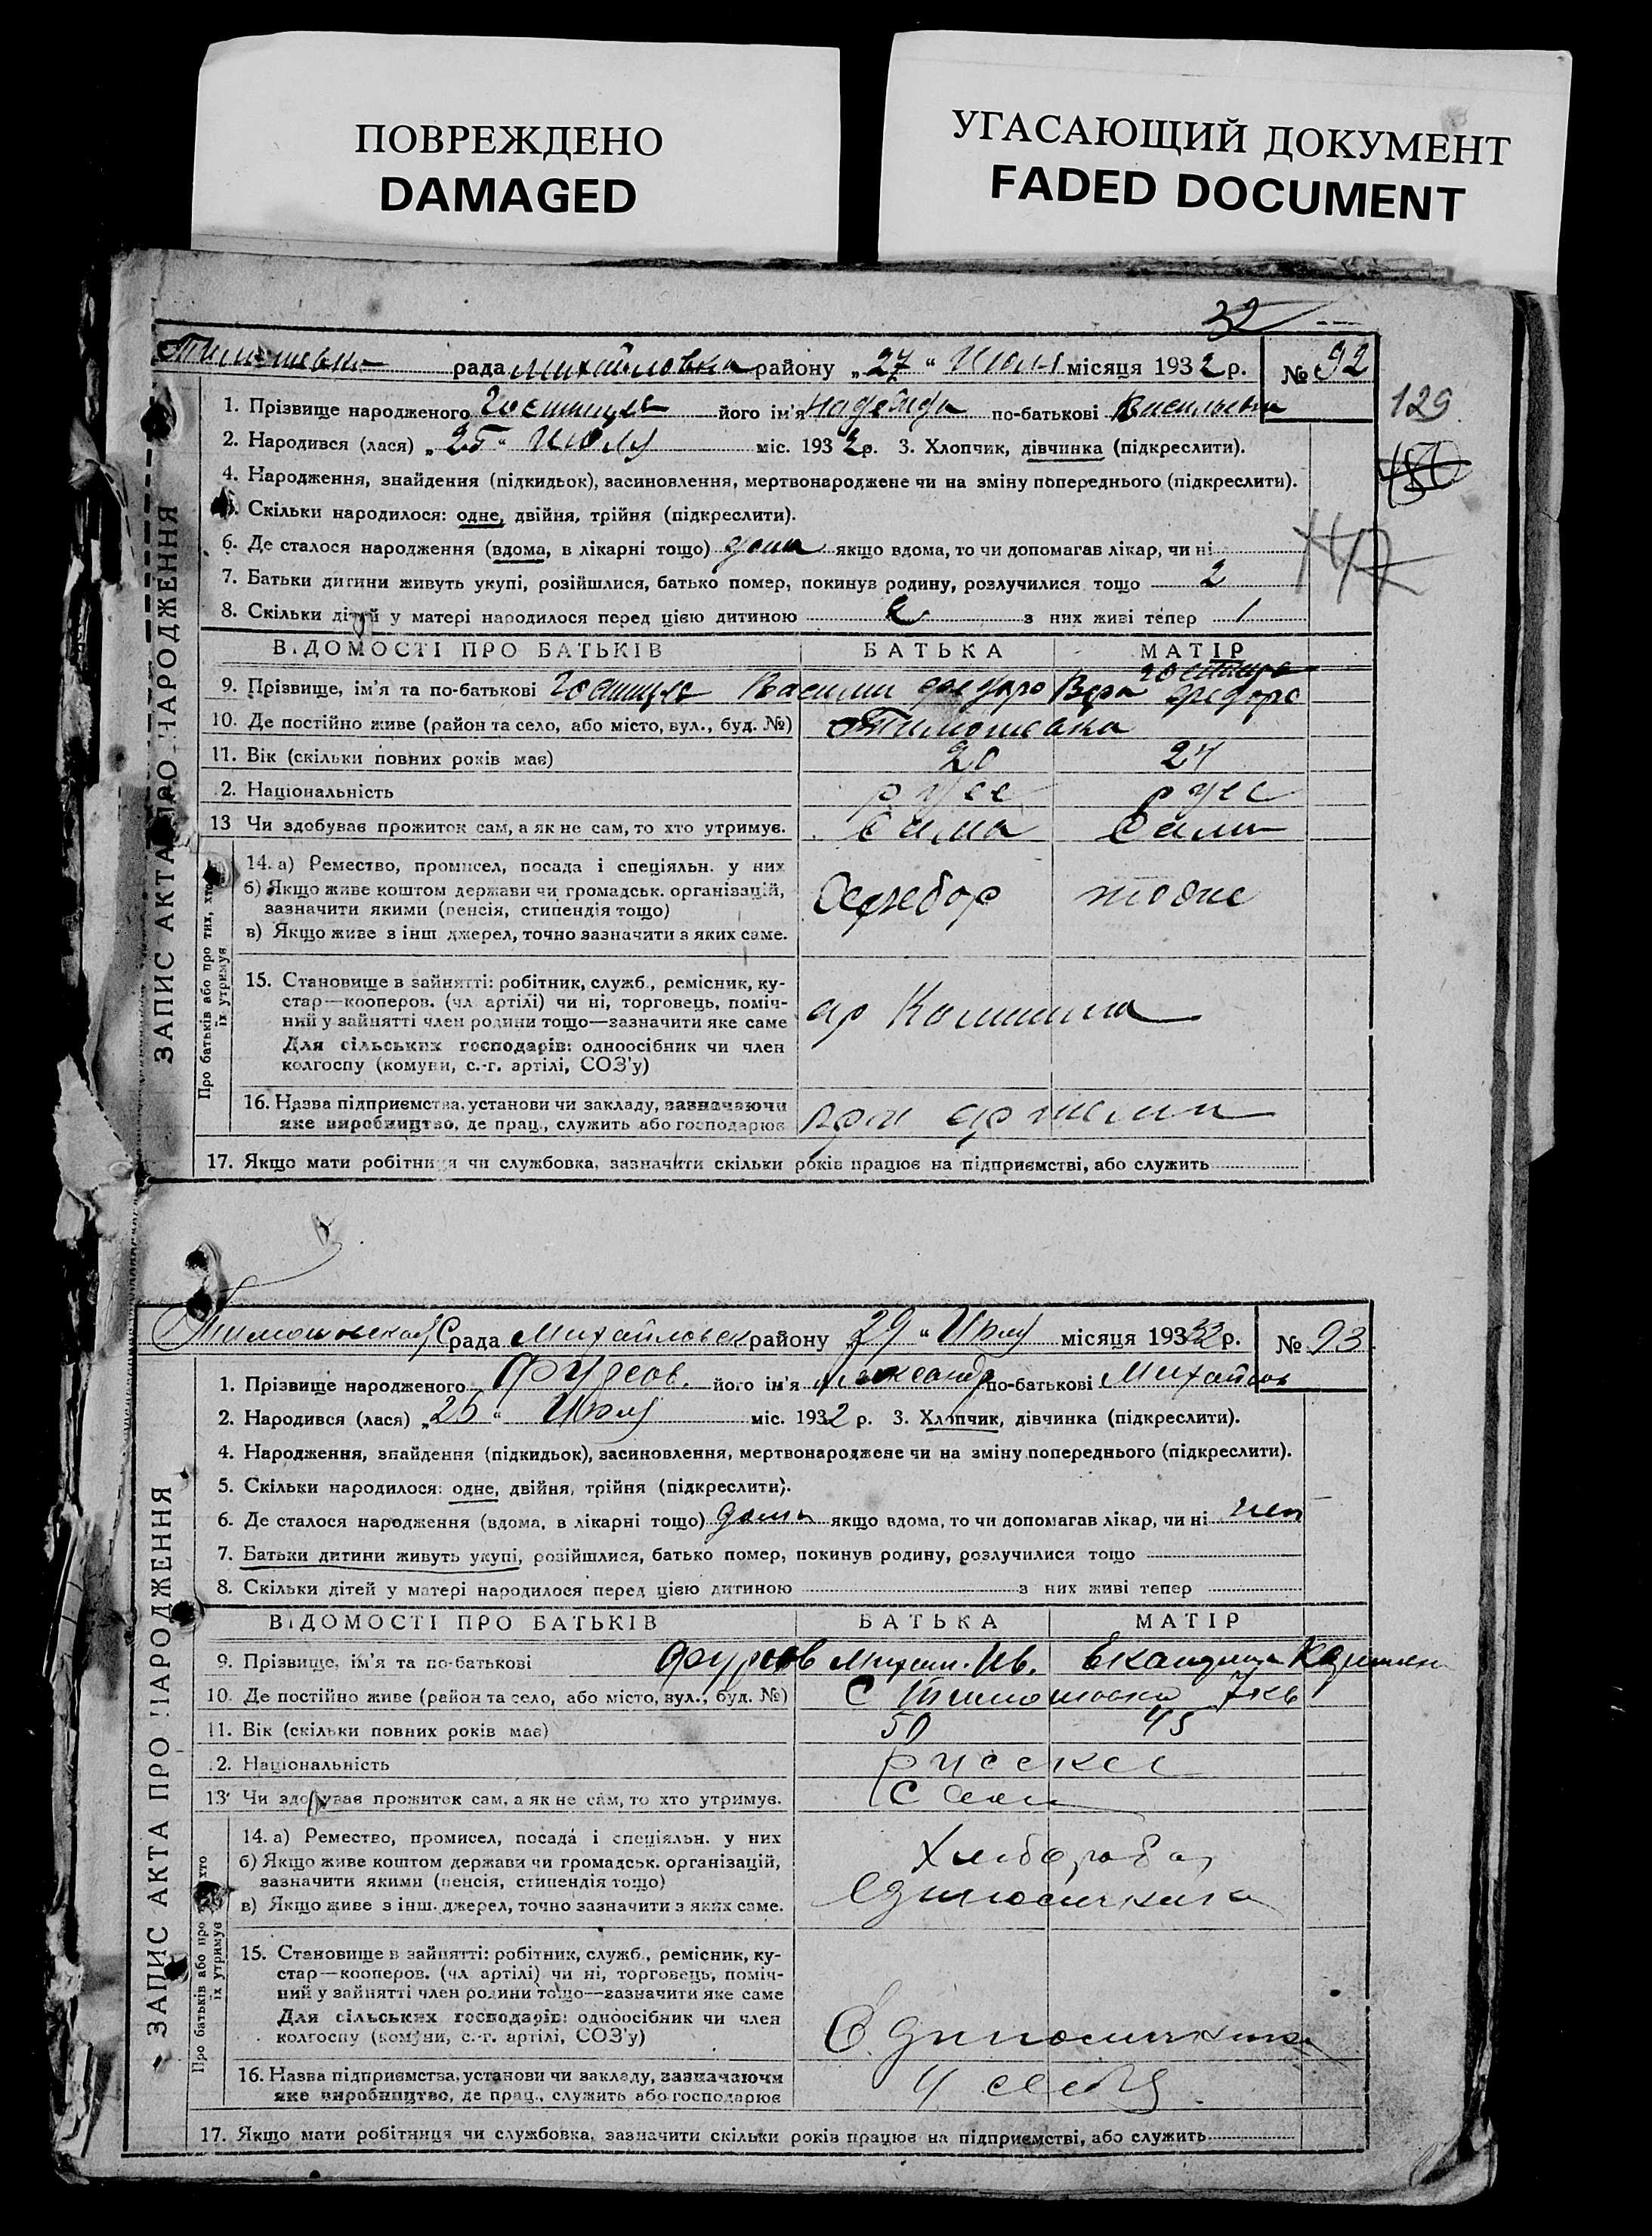 ПОВРЕЖДЕНО
DAMAGED
УГАСАЮЩИЙ ДОКУМЕНТ
FADED DOCUMENT
32
рада Михайловка району „27“ місяця 1932 р. № 92
129
1. Прізвище народженого його ім'я Надежда по-батькові Васильевна
2. Народився (лася) „25“ Июля міс. 1932 р. 3. Хлопчик, дівчинка (підкреслити).
4. Народження, знайдення (підкидьок), засиновлення, мертвонароджене чи на зміну попереднього (підкреслити).
5. Скільки народилося: одне, двійня, трійня (підкреслити).
6. Де сталося народження (вдома, в лікарні тощо) дома якщо вдома, то чи допомагав лікар, чи ні
7. Батьки дитини живуть укупі, розійшлися, батько помер, покинув родину, розлучилися тощо 2
8. Скільки дітей у матері народилося перед цією дитиною з них живі тепер 1
ВІДОМОСТІ ПРО БАТЬКІВ БАТЬКА МАТІР
9. Прізвище, ім'я та по-батькові Василий Федоро Вера Федоро
10. Де постійно живе (район та село, або місто, вул., буд. №) Тимошовка
11. Вік (скільки повних років має) 20 24
12. Національність русс русс
13 Чи здобуває прожиток сам, а як не сам, то хто утримує. Сама Сами
Про батьків або про тих, хто їх утримує
14. а) Ремество, промисел, посада і спеціяльн. у них
б) Якщо живе коштом держави чи громадськ. організацій,
зазначити якими (пенсія, стипендія тощо)
в) Якщо живе з інш. джерел, точно зазначити з яких саме.
15. Становище в зайнятті: робітник, служб., ремісник, ку-
стар—кооперов. (чл. артілі) чи ні, торговець, поміч-
ний у зайнятті член родини тощо—зазначити яке саме
Для сільських господарів: одноосібник чи член
колгоспу (комуни, с.-г. артілі, СОЗ'у)
16. Назва підприємства, установи чи закладу, зазначаючи
яке виробництво, де прац., служить або господарює
17. Якщо мати робітниця чи службовка, зазначити скільки років працює на підприємстві, або служить
ЗАПИС АКТА ПРО НАРОДЖЕННЯ
рада Михайловск району „29“ Июля місяця 1932 р. № 93
1. Прізвище народженого Фурсов його ім'я Александр по-батькові Михайлов
2. Народився (лася) „25“ Июля міс. 1932 р. 3. Хлопчик, дівчинка (підкреслити).
4. Народження, знайдення (підкидьок), засиновлення, мертвонароджене чи на зміну попереднього (підкреслити).
5. Скільки народилося: одне, двійня, трійня (підкреслити).
6. Де сталося народження (вдома, в лікарні тощо) дома якщо вдома, то чи допомагав лікар, чи ні нет
7. Батьки дитини живуть укупі, розійшлися, батько помер, покинув родину, розлучилися тощо
8. Скільки дітей у матері народилося перед цією дитиною з них живі тепер
ВІДОМОСТІ ПРО БАТЬКІВ БАТЬКА МАТІР
9. Прізвище, ім'я та по-батькові Фурсов Михаил Ив.
10. Де постійно живе (район та село, або місто, вул., буд. №) С Тимошовка
11. Вік (скільки повних років має) 50 45
12. Національність русские
13 Чи здобуває прожиток сам, а як не сам, то хто утримує. Сами
Про батьків або про тих, хто їх утримує
14. а) Ремество, промисел, посада і спеціяльн. у них Хлебороб
б) Якщо живе коштом держави чи громадськ. організацій,
зазначити якими (пенсія, стипендія тощо)
в) Якщо живе з інш. джерел, точно зазначити з яких саме.
15. Становище в зайнятті: робітник, служб., ремісник, ку-
стар—кооперов. (чл. артілі) чи ні, торговець, поміч-
ний у зайнятті член родини тощо—зазначити яке саме
Для сільських господарів: одноосібник чи член
колгоспу (комуни, с.-г. артілі, СОЗ'у)
16. Назва підприємства, установи чи закладу, зазначаючи
яке виробництво, де прац., служить або господарює у себя
17. Якщо мати робітниця чи службовка, зазначити скільки років працює на підприємстві, або служить
ЗАПИС АКТА ПРО НАРОДЖЕННЯ